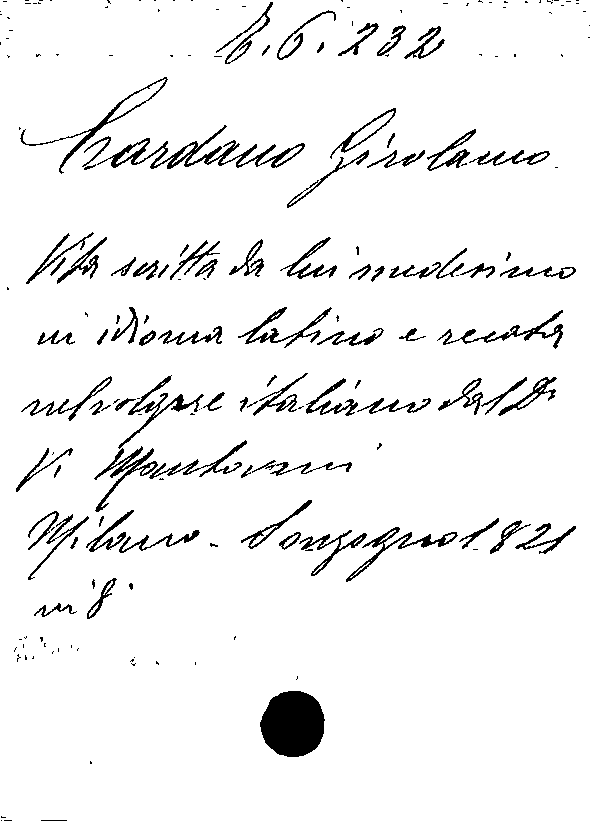 E. 6. 232
Cardano Girolamo
Vita scritta da lui medesimo
in idioma latino e recata
nel volgare italiano dal Dr
V. Mantovani
Milano - Sonzogno 1821
in 8°